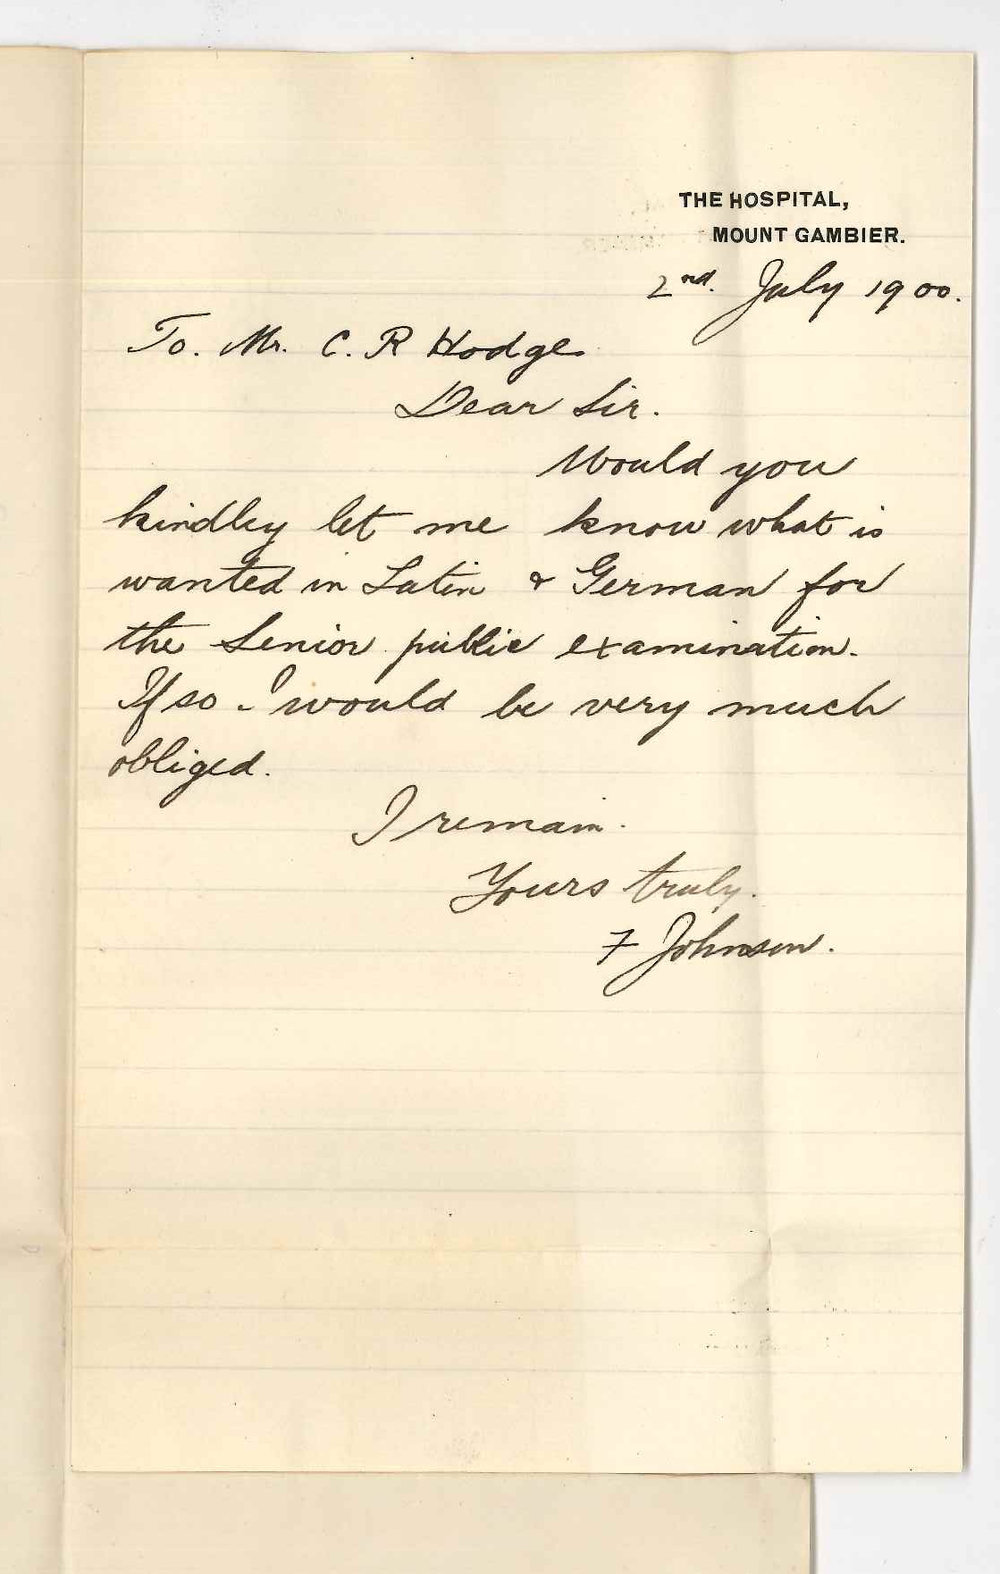 THE HOSPITAL,
MOUNT GAMBIER.
2nd. July 1900.
To. Mr. C. R Hodge
Dear Sir.
Would you
kindley let me know what is
wanted in Latin & German for
the Senior public examination.
If so I would be very much
obliged.
I remain.
Yours truly.
F Johnson.